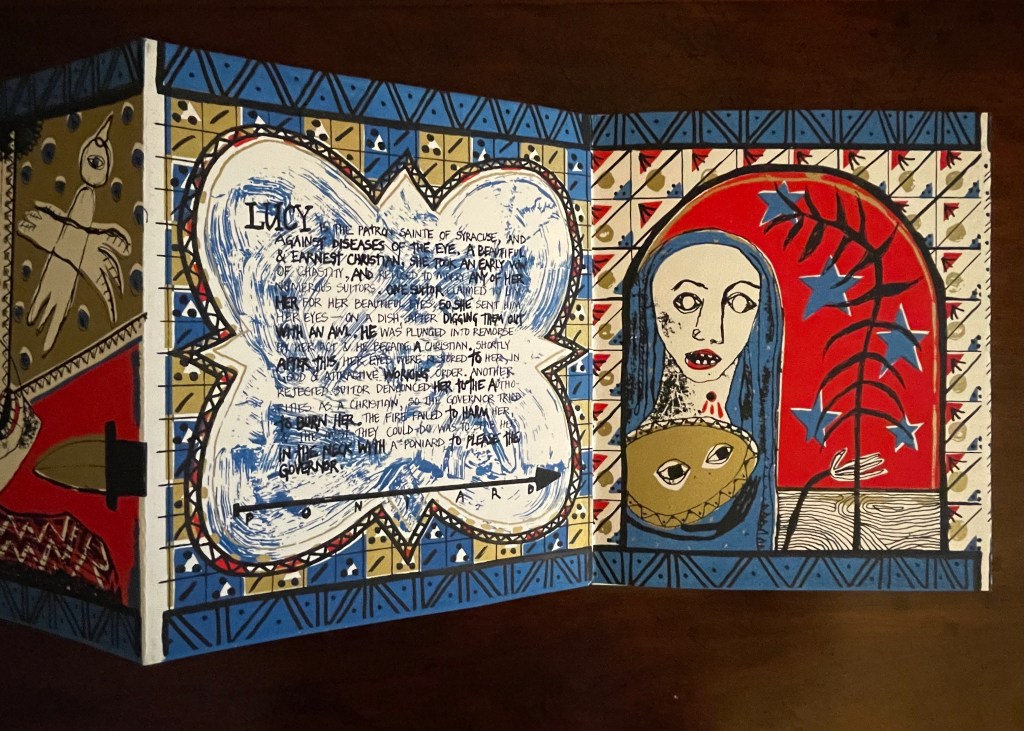 LUCY IS THE PATRON SAINTE OF SYRACUSE, AND
AGAINST DISEASES OF THE EYE. A BEAUTIFUL
& EARNEST CHRISTIAN, SHE TOOK AN EARLY VOW
OF CHASTITY, AND REFUSED TO MARRY ANY OF HER
NUMEROUS SUITORS. ONE SUITOR CLAIMED TO LOVE
HER FOR HER BEAUTIFUL EYES, SO SHE SENT HIM
HER EYES — ON A DISH, AFTER DIGGING THEM OUT
WITH AN AWL. HE WAS PLUNGED INTO REMORSE
BY HER ACT & HE BECAME A CHRISTIAN. SHORTLY
AFTER THIS, HER EYES WERE RESTORED TO HER, IN
GOOD & ATTRACTIVE WORKING ORDER. ANOTHER
REJECTED SUITOR DENOUNCED HER TO THE AUTHO-
RITIES AS A CHRISTIAN, SO THE GOVERNOR TRIED
TO BURN HER. THE FIRE FAILED TO HARM HER,
THEY COULD DO WAS TO HER
IN THE NECK WITH A PONIARD TO PLEASE THE
GOVERNOR.
PONIARD